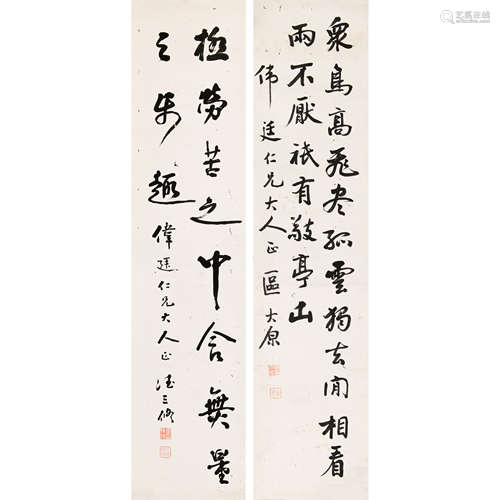 眾鳥高飛盡孤雲獨去閒相看
兩不厭祇有敬亭山
偉廷仁兄大人正 區大原
極勞苦之中含無量
之樂趣 偉廷仁兄大人正
艺狐在线